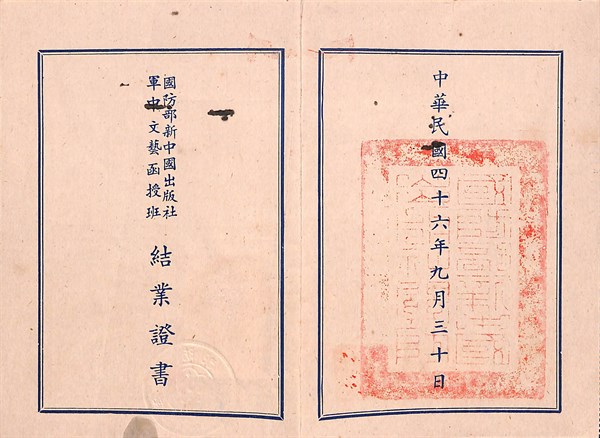 中華民國四十六年九月三十日
國防部新中國出版社
軍中文藝函授班
結業證書